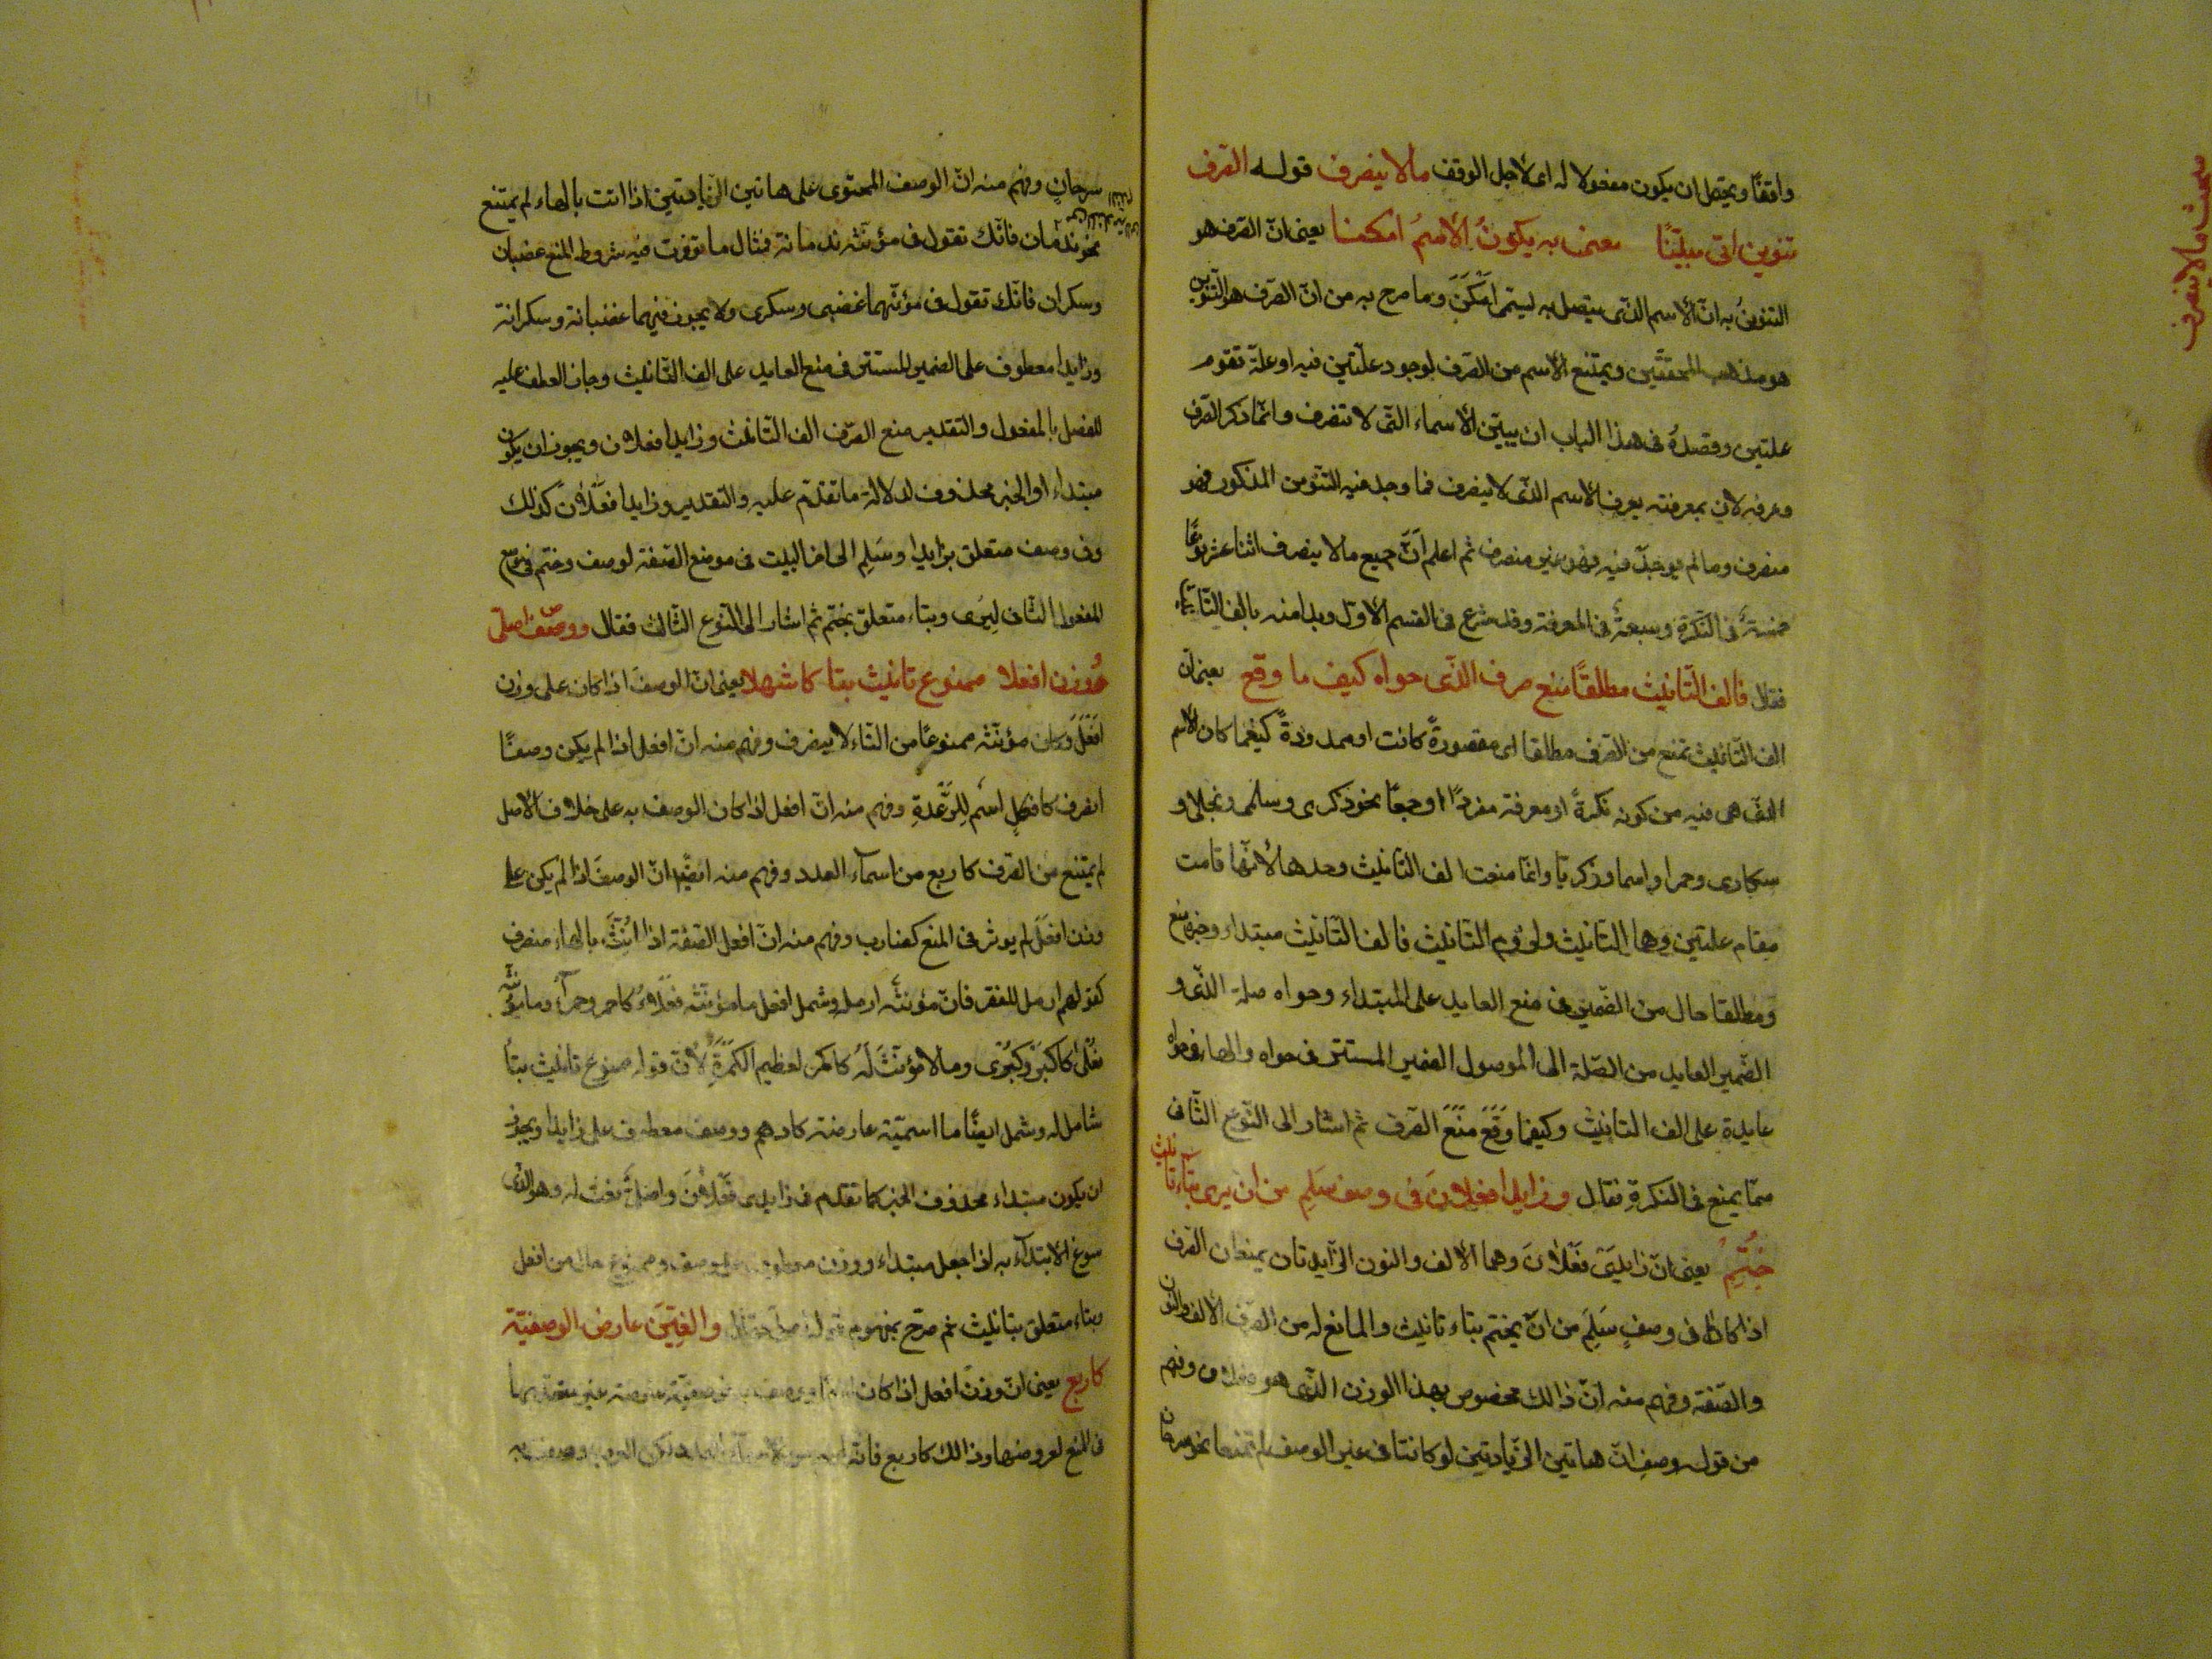 واقفًا ويحتمل ان يكون مفعولا له اى لاجل الوقف مالا ينصرف قوله الصّرف
تنوين اتى مبيّنًا معنى به يكونُ الاسمُ امكنا يعنى انّ الصّرف هو
التنوينُ به انّ الاسم الذّى يتصل به ليسمّى امكَنَ وما صرح به من انّ الصّرف هو التّنوين
هو مذهب المحققّين ويمتنع الاسم من الصّرف لوجود علّتين فيه او علّة تقوم
علتين وقصدهُ فى هذا الباب ان يبيّن الاسماء الّتى لا تنصرف وانّما ذكر الصّرف
وعرفه لانّ بمعرفته يعرف الاسم الذّى لا ينصرف فما وجد فيه التنوين المذكور فهو
منصرف وما لم يوجد فيه فهو غير منصرف ثم اعلم انّ جميع مالا ينصرف اثنا عشر نوعًا
خمسة فى النّكرة وسبعة فى المعرفة وقد شرع فى القسم الاوّل وبدا منه بالف التّانيث
فقال فالف التّانيث مطلقًا منع صرف الذّى حواه كيف ما وقع يعنى انّ
الف التّانيث تمنع من الصّرف مطلقا اى مقصورةً كانت او ممدودةً كيفما كان الاسم
الّتى هى فيه من كونه نكرةً او معرفة مفردًا او جمعًا نحو ذكرى وسلمى ونجلى و
سكارى وحمرا واسما وزكريّا وانّما منعت الف التانيث وحدها لانّها قامت
مقام علتين وهما التانيث ولزوم التانيث فالف التّانيث مبتداء وخبره منع
ومطلقا حال من الضّمير فى منع العايد على المبتداء وحواه صلة الذّى و
الضّمير العايد من الصّلة الى الموصول الضمير المستتر فى حواه والهاء فى حواه
عايدة على الف التانيث وكيفما وَقَعَ مَنَعَ الصّرف ثم اشار الى النّوع الثّانى
ممّا يمنع فى النكرة فقال وزايدا فعلان فى وصف سَلِمِ من ان يرى بتاء تانيث
خُتِمْ يعنى انّ زايدَىْ فَعْلانَ وهما الالف والنون الزّايدتان يمنعان الصّرف
اذا كانا فى وصفٍ سَلِمَ من انّ يختم بتاء تانيث والمانع له من الصّرف الالف والنّون
والصّفة وفهم منه انّ ذالك مخصوص بهذا الوزن الذّى هو فعلان وفهم
من قوله وصف انّ هاتين الزّيادتين لو كانتا فى غير الوصف لم تمنعا نحو سرحان
سرحانٍ وفهم منه انّ الوصف المحتوى على هاتين الزّيادتين اذا انّث بالهاء لم يمتنع
نحو ندمان فانّك تقول فى مؤنّثه ندمانة فمثال ما توفرت فيه شروط المنع غضبان
وسكران فانّك تقول فى مؤنّثهما غضبى وسكرى ولا يجوز فيهما غضبانة وسكرانة
وزايدا معطوف على الضمير المستتر فى منع العايد على الف التّانيث وجاز العطف عليه
للفصل بالمفعول والتقدير منع الصّرف الف التّانيث وزايدا فعلان ويجوز ان يكون
مبتداء والخبر محذوف لدلالة ما تقدّم عليه والتقدير وزايدا فَعْلانَ كذلك
وفى وصف متعلق بزايدا وسَلِم الى اخر البيت فى موضع الصّفة لوصف وختم فى موضع
المفعول الثّانى لِيَرى وبتاء متعلق بختم ثم اشار الى النّوع الثّالث فقال ووصفٌ اصلىّ
ووزن افعلا ممنوع تانيث بتا كاشهلا يعنى انّ الوصف اذا كان على وزن
افعَلَ وكان مؤنّثه ممنوعًا من التّاء لا ينصرف وفهم منه انّ افعل اذا لم يكن وصفًا
انصرف كافكلٍ اسم لِلرّعْدةِ وفهم منه انّ افعل اذا كان الوصف به على خلاف الاصل
لم يمتنع من الصّرف كاربع من اسماء العدد وفهم منه ايضًا انّ الوصف اذا لم يكن على
وزن افعَلَ لم يوثر فى المنع كضارب وفهم منه انّ افعل الصّفة اذا اُنِّثَ بالهاء منصرف
كقولهم ارمل للفقر فانّ مؤنثه ارملة وشمل افعل ما مؤنّثه فَعْلاءُ كاحمر وحمراء وما مؤنّثه
فُعْلى كاكبَرَ وكُبْرى ومالا مؤنّثَ لَهُ كاكمر لعظيم الكَمَرَةِ لانّ قوله ممنوع تانيث بتا
شامل له وشمل ايضًا ما اسميّته عارضة كادهم ووصف معطوف على زايدا ويجوز
ان يكون مبتداء محذوف الخبر كما تقدم فى زايدى فَعْلانَ واصلىّ نعت له وهو الذّى
سوغ الابتداء به اذا جعل مبتداء ووزن معطوف على وصف وممنوع حال من افعل
وبتاء متعلق بتانيث ثم صرّح بمفهوم قوله اصلى فقال والغِيَنَ عارض الوصفيّة
كاربع يعنى انّ وزن افعل اذا كان
فى المنع لعروضها وذالك كاربع فانّه
مبحث مالا ينصرف